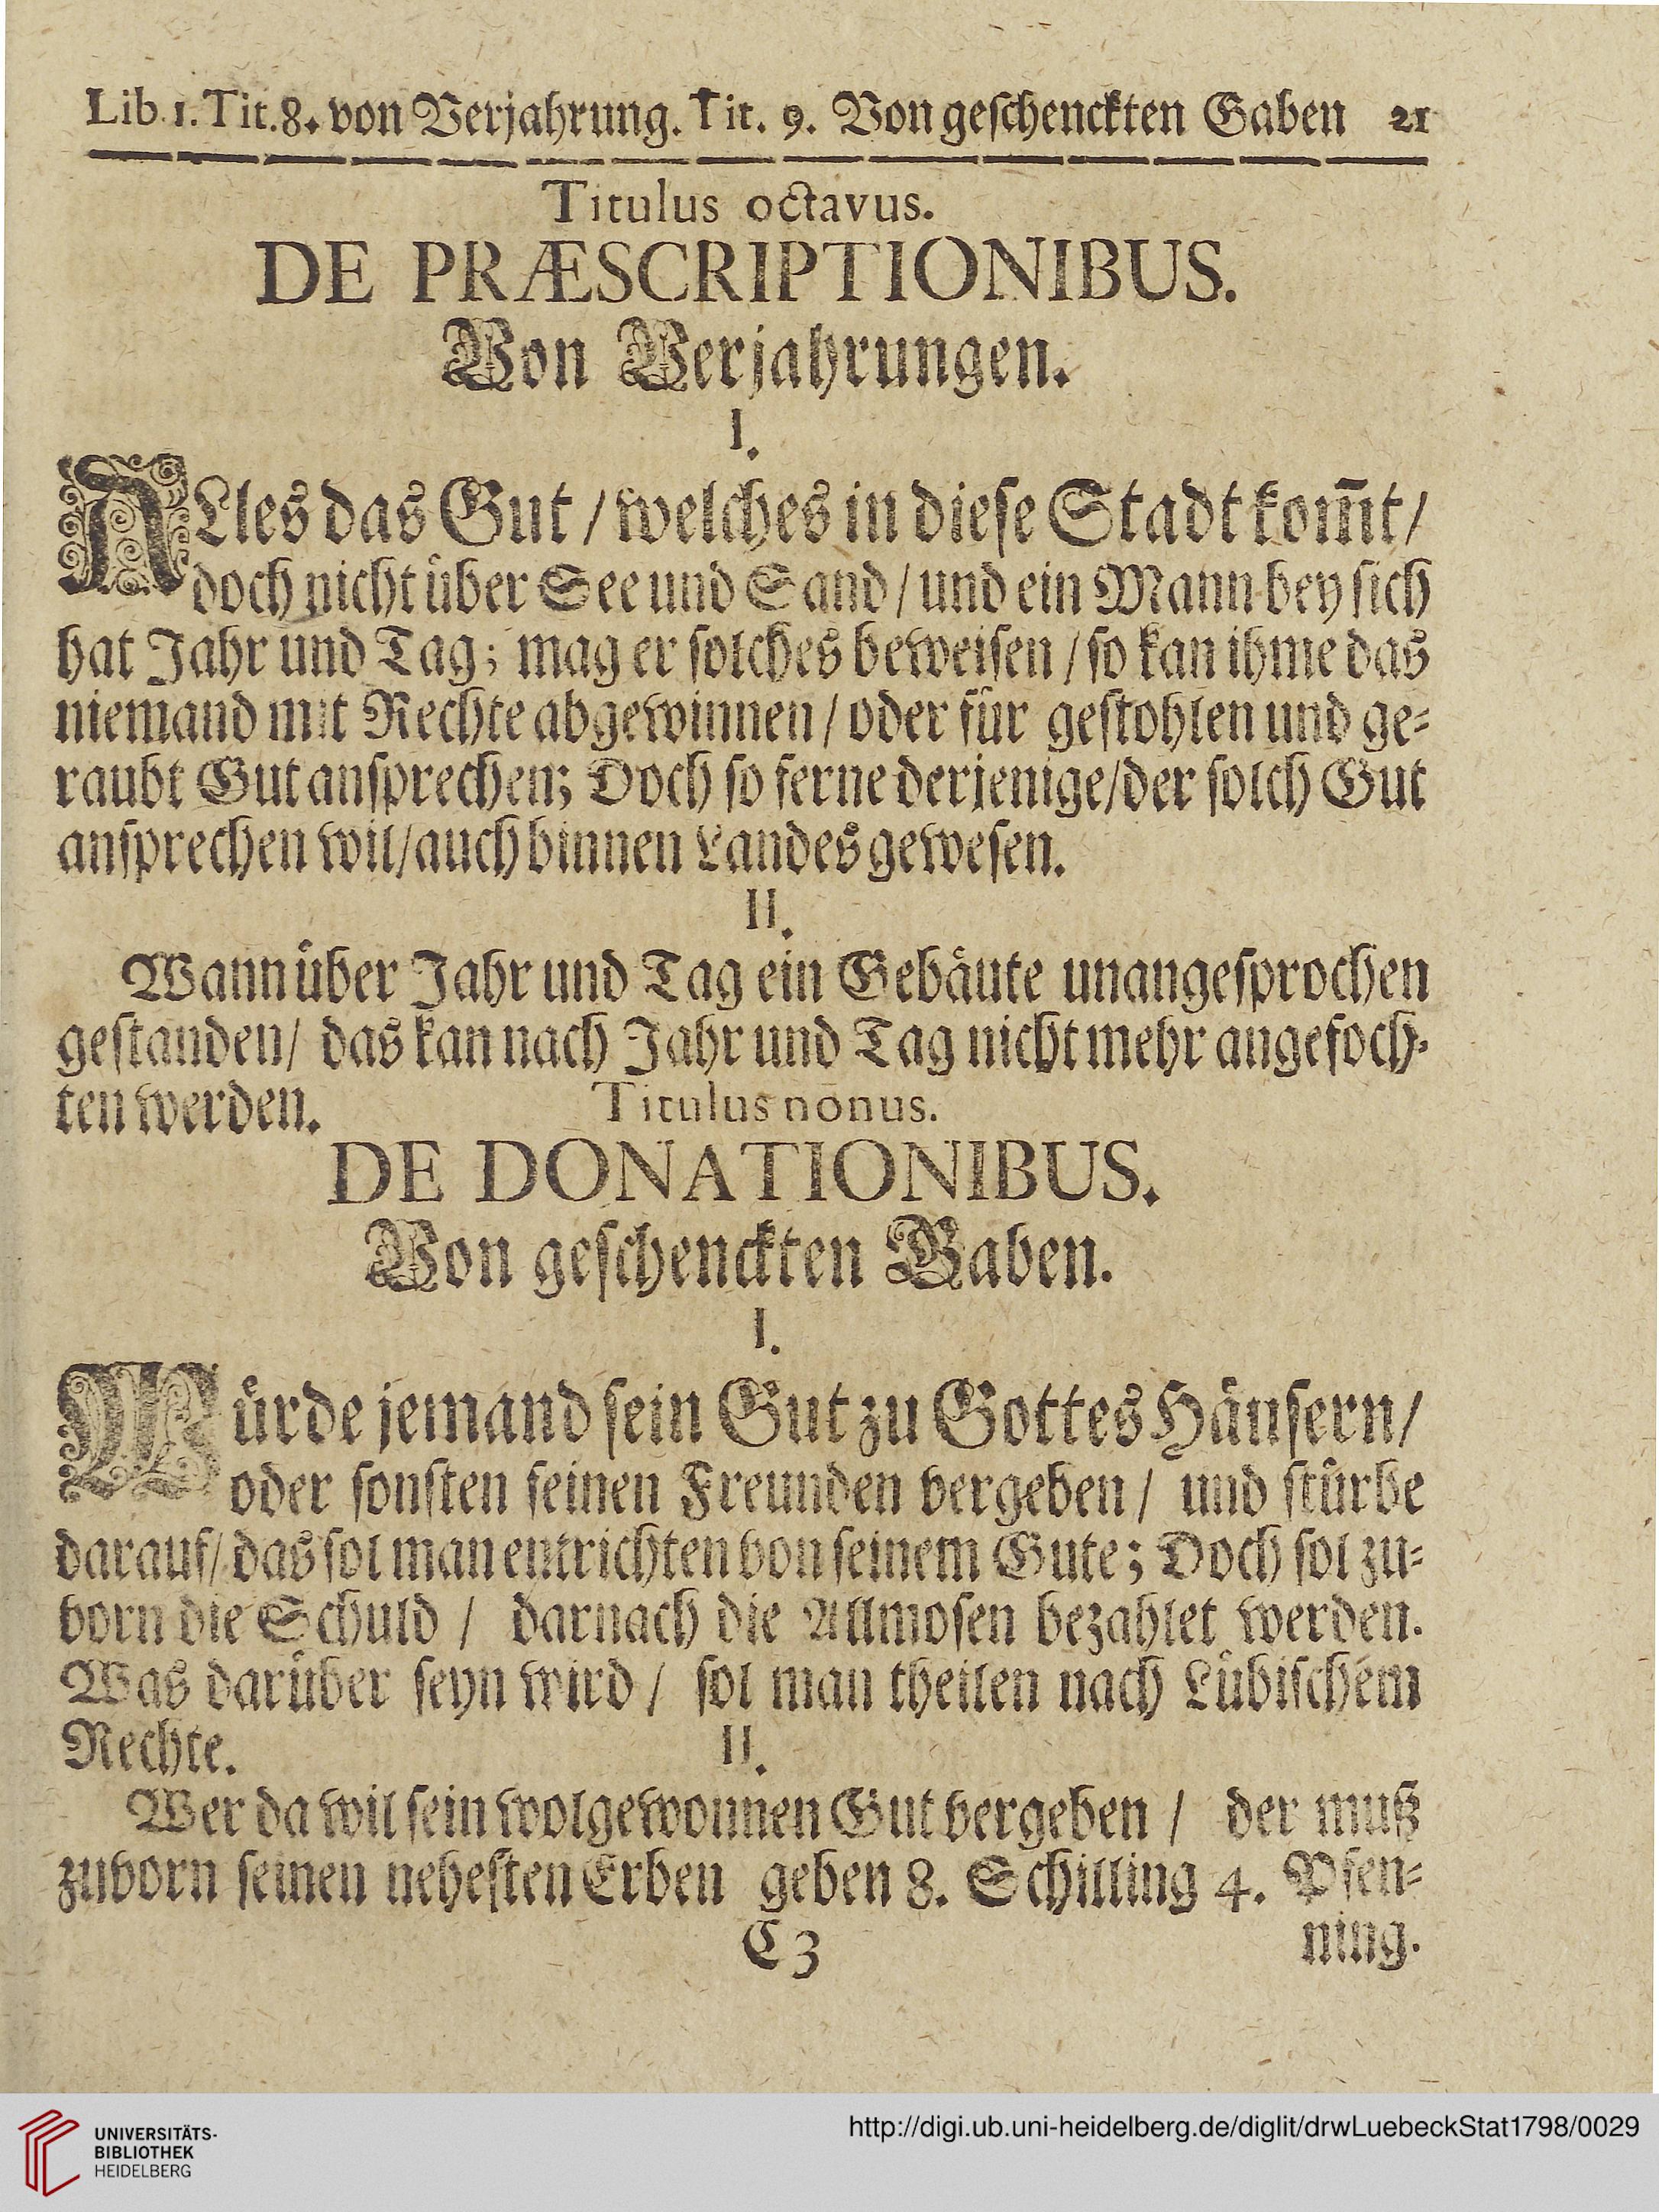 Lib. 1. Tit. 8. von Verjahrung. Tit. 9. Von geschenckten Gaben 21
Titulus octavus.
DE PRÆSCRIPTIONIBUS.
Von Verjahrungen.
I.
ALles das Gut / welches in diese Stadt kom̃t /
doch nicht über See und Sand / und ein Mann bey sich
hat Jahr und Tag; mag er solches beweisen / so kan ihme das
niemand mit Rechte abgewinnen / oder für gestohlen und ge-
raubt Gut ansprechen; Doch so ferne derjenige / der solch Gut
ansprechen wil / auch binnen Landes gewesen.
II.
Wann über Jahr und Tag ein Gebäute unangesprochen
gestanden / das kan nach Jahr und Tag nicht mehr angefoch-
ten werden.
Titulus nonus.
DE DONATIONIBUS.
Von geschenckten Gaben.
I.
Würde jemand sein Gut zu Gottes Häusern /
oder sonsten seinen Freunden vergeben / und stürbe
darauf / das sol man entrichten von seinem Gute; Doch sol zu-
vorn die Schuld / darnach die Allmosen bezahlet werden.
Was darüber seyn wird / sol man theilen nach Lübischem
Rechte.
II.
Wer da wil sein wolgewonnen Gut vergeben / der muß
zuvorn seinen nehesten Erben geben 8. Schilling 4. Pfen-
C 3
ning.
UNIVERSITÄTS-
BIBLIOTHEK
HEIDELBERG
http://digi.ub.uni-heidelberg.de/diglit/drwLuebeckStat1798/0029